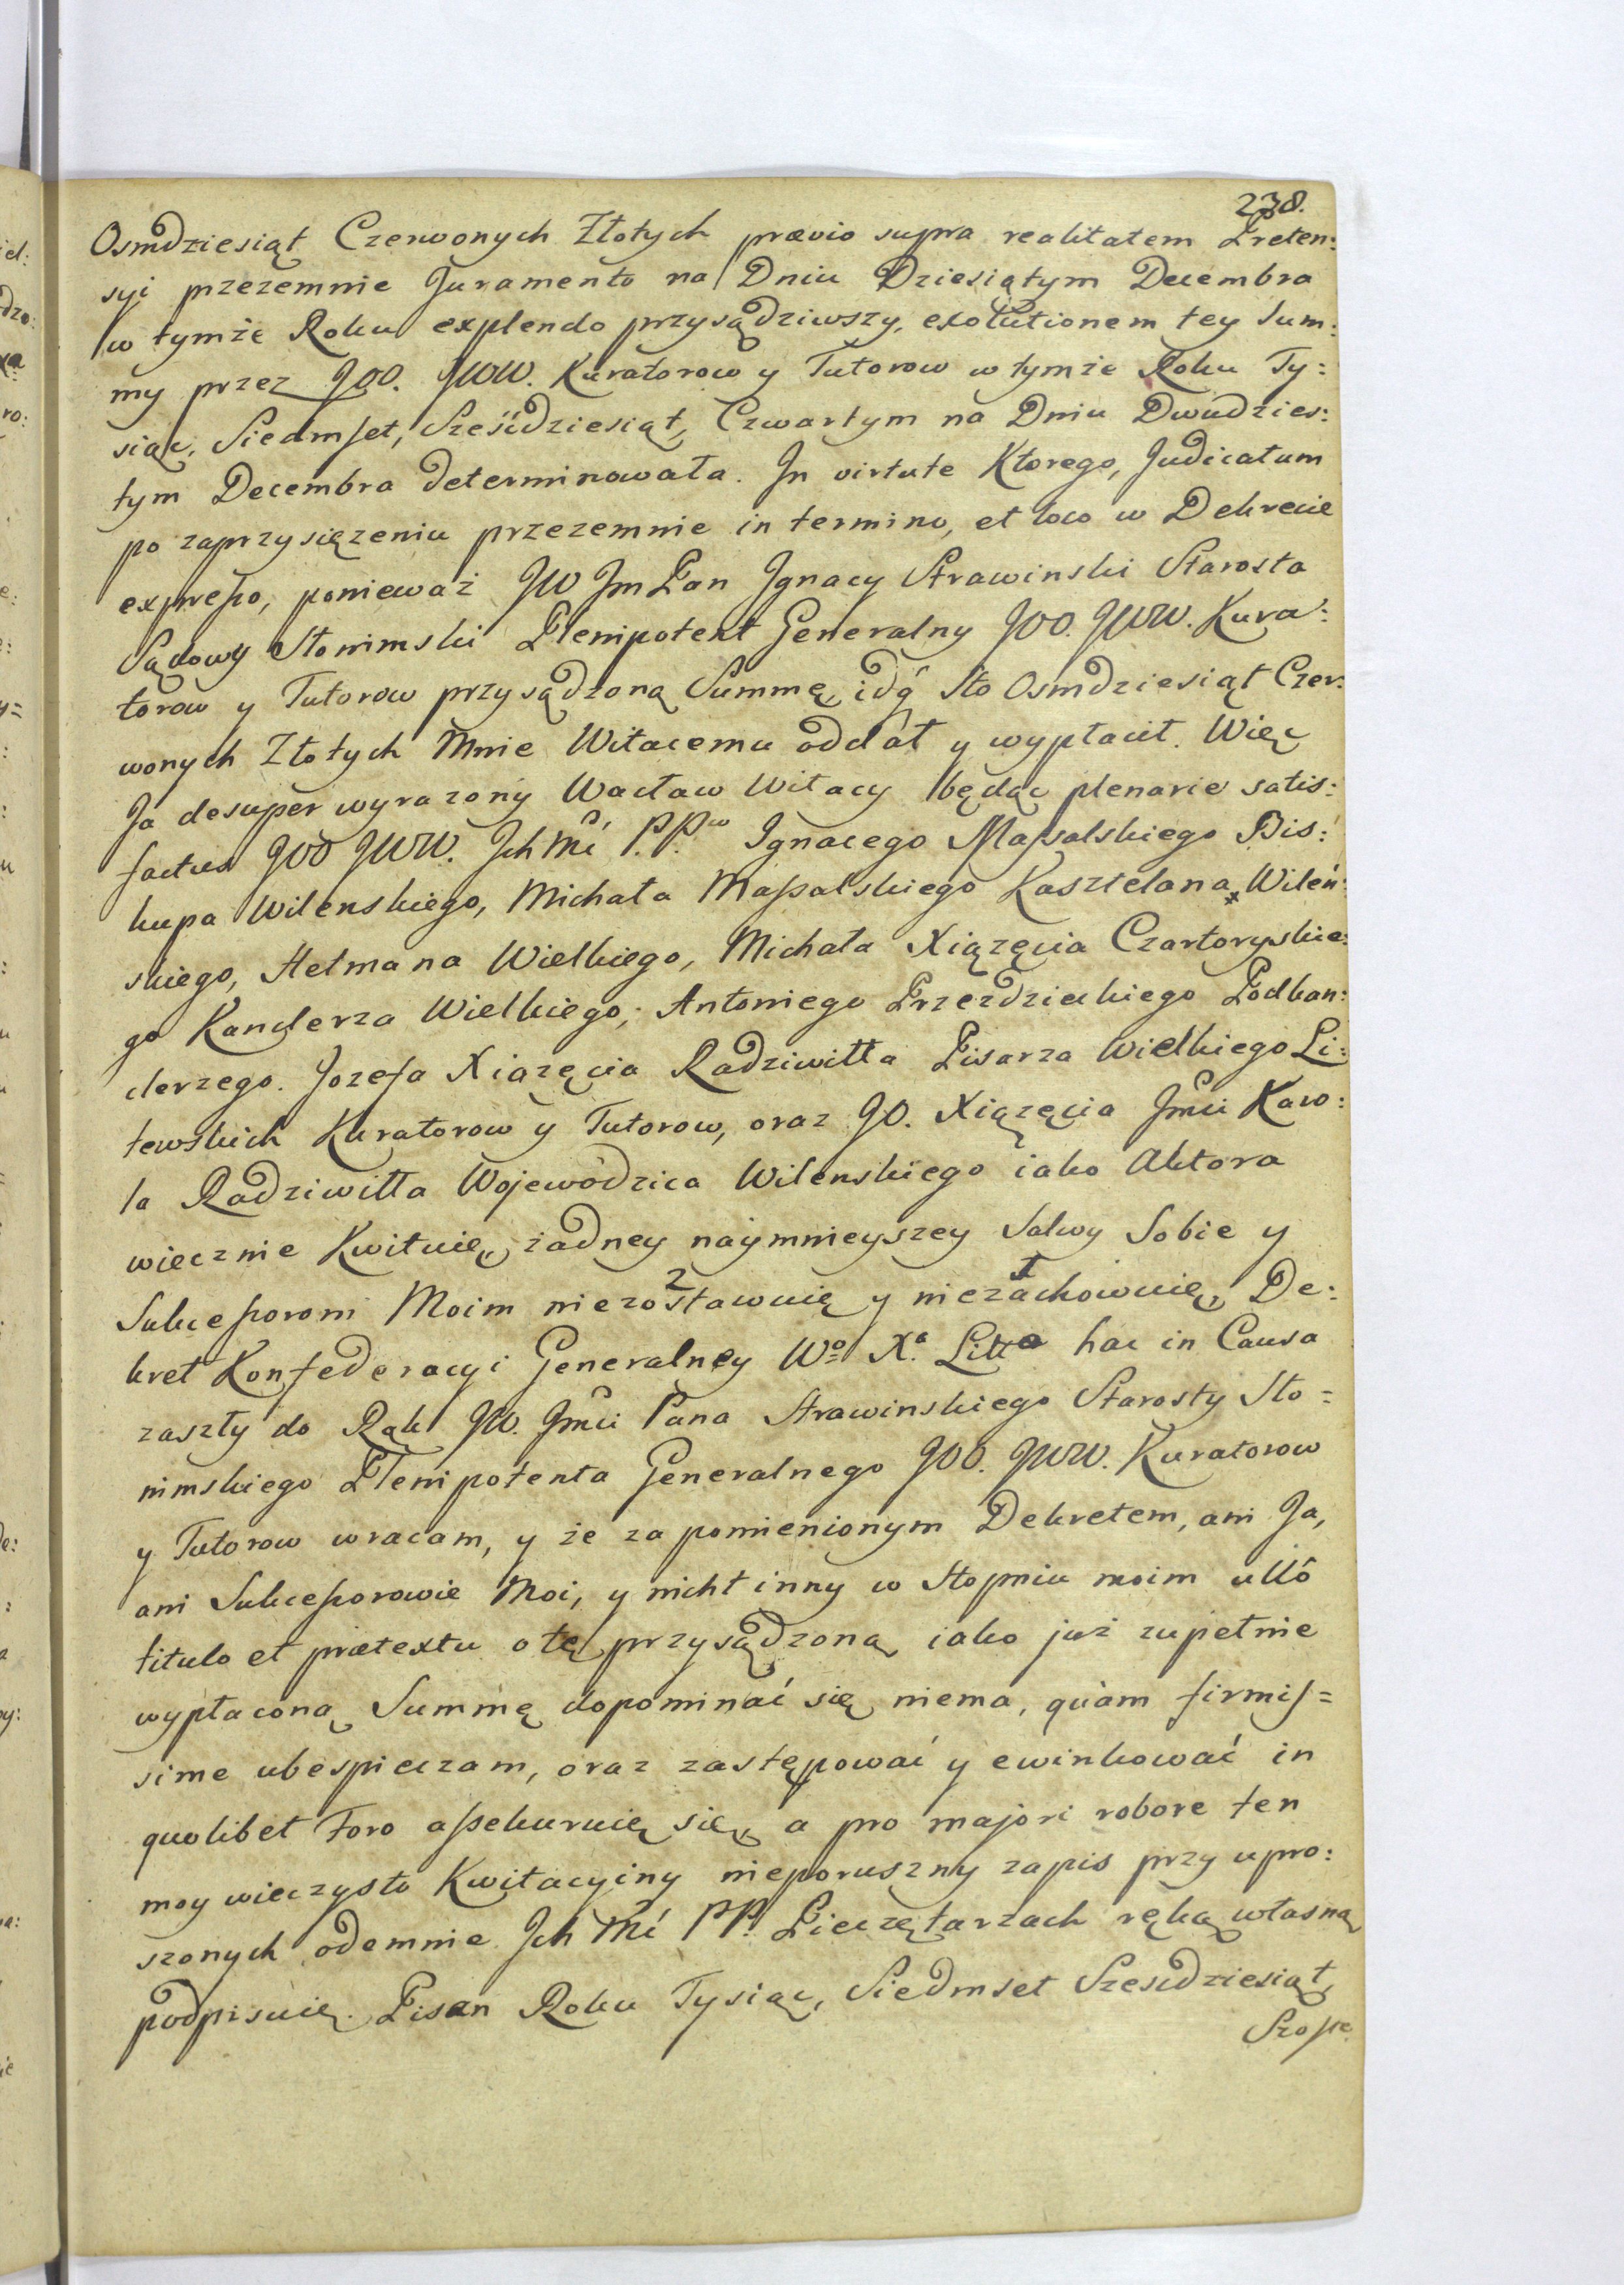 238.
Osmdziesiąt Czerwonych Złotych prævio supra realitatem Preten:
syi przezemnie Juramento na Dniu Dziesiątym Decembra
w tymże Roku explendo przysądziwszy, exolutionem tey Sum:
my przez JOO. JWW. Kuratorow y Tutorow w tymże Roku Ty:
siąc, Siedmset, Sześćdziesiąt, Czwartym na Dniu Dwudzies:
tym Decembra determinowała. In virtute Ktorego, Judicatum
po zaprzysiężeniu przezemnie in termino, et loco w Dekrecie
expresso, ponieważ JW Jm Pan Jgnacy Strawinski Starosta
Sądowy Słonimski Plenipotent Generalny JOO. JWW. Kura:
torow y Tutorow przysądzoną Summę, idq́ Sto Osmdziesiąt Czer:
wonych Złotych Mnie Witacemu oddał y wypłacił. Więc
Ja desuper wyrażony Wacław Witacy będąc plenarie satis:
factus JOO JWW. Jch Mć P.P.ʷ Ignacego Massalskiego Bis:
kupa Wilenskiego, Michała Massalskiego Kasztelana Wileń:
skiego, Hetmana Wielkiego, Michała Xiążęcia Czartoryskie:
go Kanclerza Wielkiego, Antoniego Przezdzieckiego Podkan:
clerzego. Jozefa Xiążęcia Radziwiłła Pisarza Wielkiego Li:
tewskich Kuratorow y Tutorow, oraz JO. Xiążęcia Jmći Karo:
la Radziwiłła Wojewodzica Wilenskiego iako Aktora
wiecznie Kwituię, żadney naymnieyszey Salwy Sobie y
Sukcessorom Moim niezo²stawuię y nieza¹chowuię, De:
kret Konfederacyi Generalney Wº Xª Littª hac in Causa
zaszły do Rąk JW. Jmći Pana Strawinskiego Starosty Sło=
nimskiego Plenipotenta Generalnego JOO. JWW. Kuratorow
y Tutorow wracam, y że za pomienionym Dekretem, ani Ja,
ani Sukcessorowie Moi, y nicht inny w Stopniu moim ullô
titulo et prætextu o tę przysądzoną iako już zupełnie
wypłaconą Summę dopominać się niema, quàm firmis=
sime ubespieczam, oraz zastępować y ewinkować in
quolibet Foro assekuruię się, a pro majori robore ten
moy wieczysto Kwitacyiny nieporuszny zapis przy upro:
szonych odemnie Jch Mć PP. Pieczętarzach ręką własną
podpisuię. Pisan Roku Tysiąc, Siedmset Szesćdziesiąt,